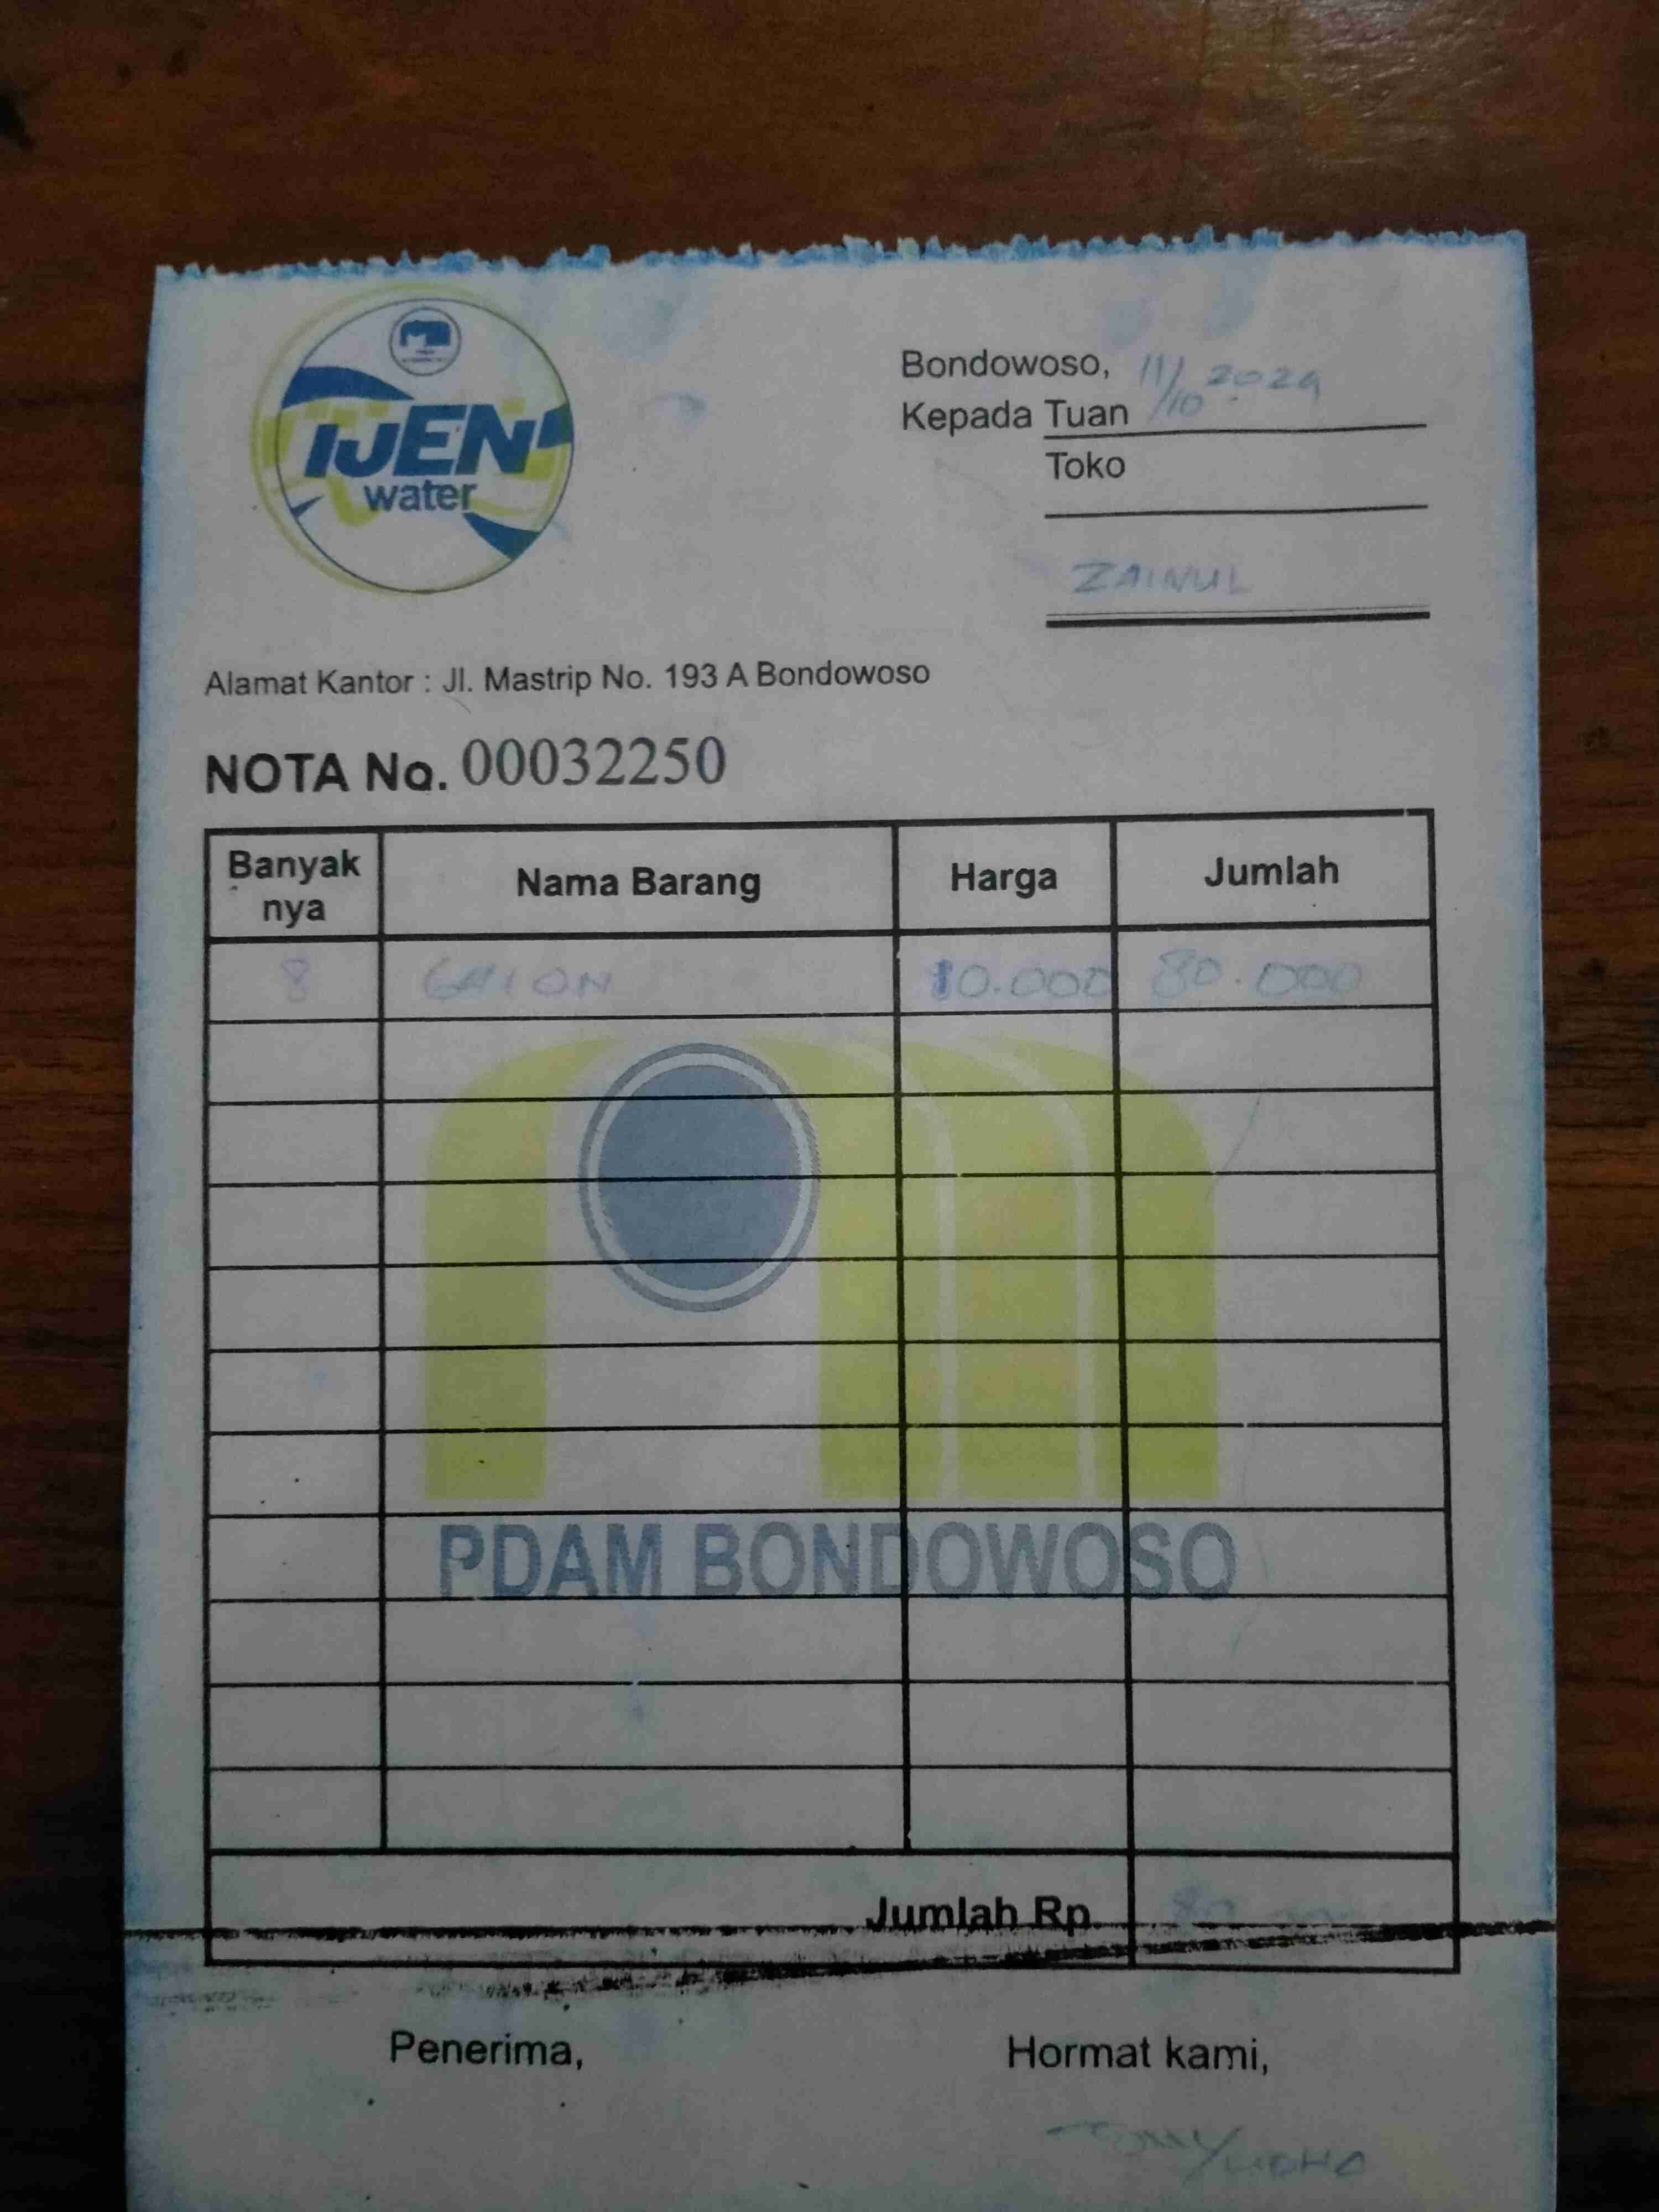 IJEN
water
Bondowoso, 11/10 2024
Kepada Tuan
Toko
ZAINUL
Alamat Kantor : Jl. Mastrip No. 193 A Bondowoso
NOTA No. 00032250
Banyak nya Nama Barang Harga Jumlah
8 GALON 10.000 80.000
PDAM BONDOWOSO
Jumlah Rp.
Penerima, Hormat kami,